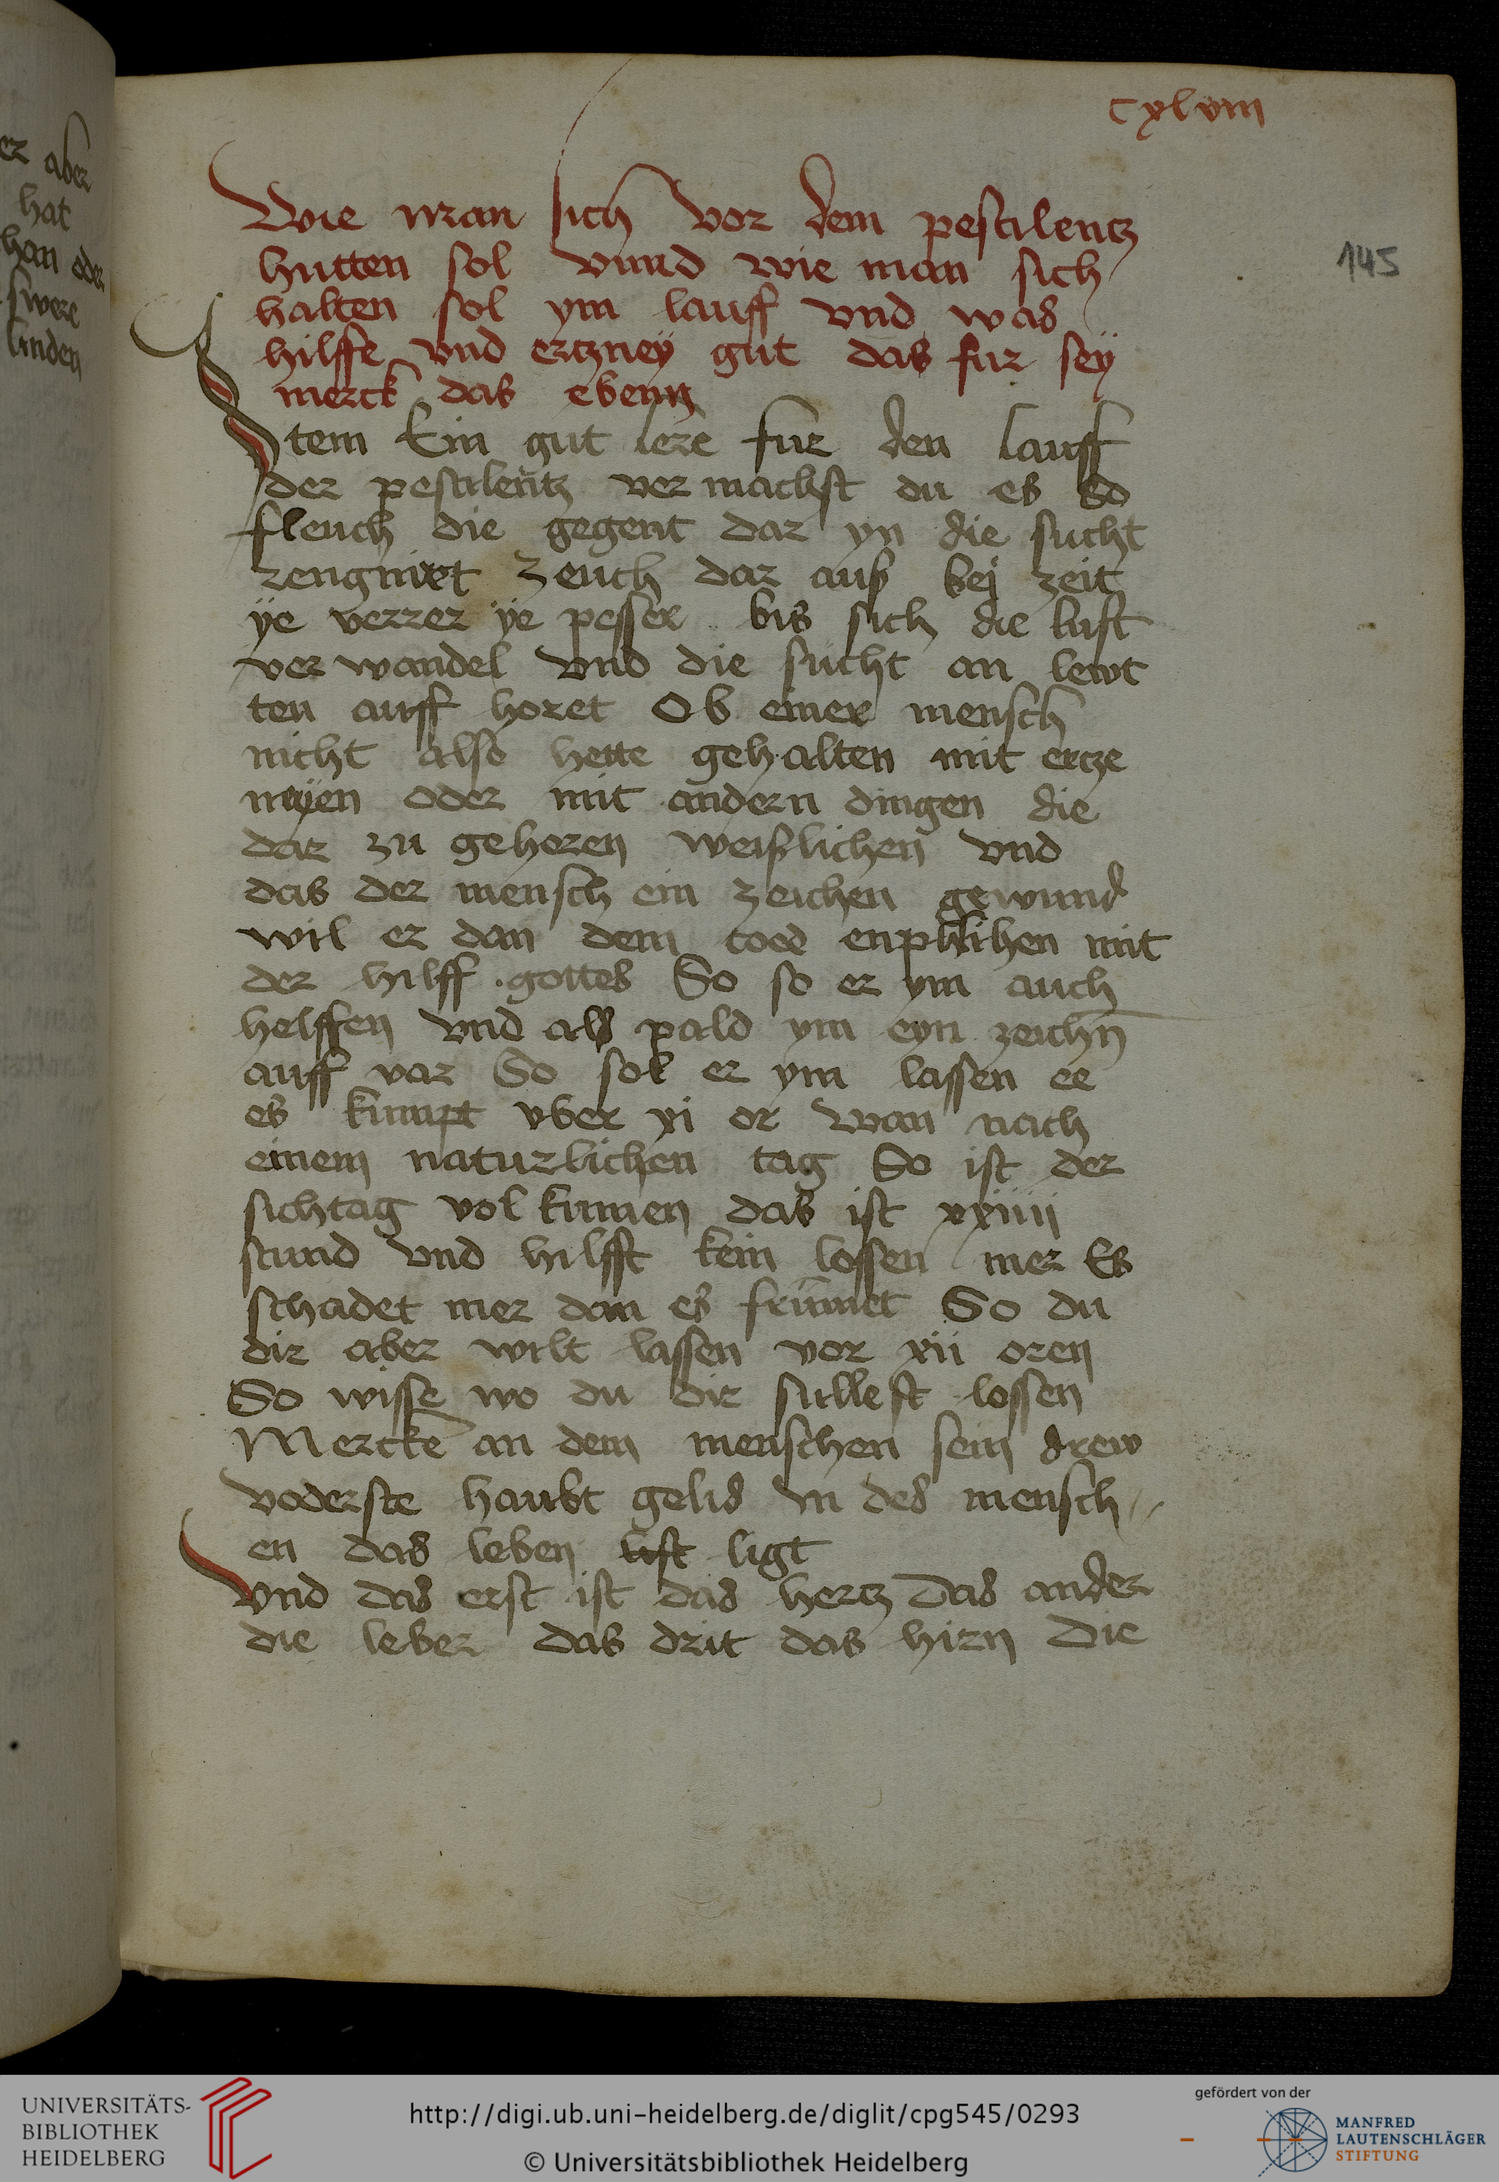 er aber
hat
han oder
swere
linden
cxlviii
145
Wie man sich vor dem pestilentz
hutten sol vnnd wie man sich
halten sol ym lauff vnd was
hilffe vnd ertzneÿ gut das fur seÿ
merck das ebenn
Item Ein gut lere fur den lauff
der pestilentz ver machst du es So
fleuch die gegent dar yn die sucht
rengnirt Zeuch dar auß bej zeit
ÿe verrer ÿe pesser bis sich die luft
ver wandel vnd die sucht an lewt
ten auff horet Ob einer mensch
nicht also hette gehalten mit ertze
nnyen oder mit andern dingen die
dar zu gehoren weißlichen vnd
das der mensch ein zeichen gewund
wil er dan dem toed enpflihen mit
der hilff gottes So so er ym auch
helffen vnd als pald ym eyn zeichn
auff var So sol er ym lassen ee
es kumpt vber xi or wan nach
einem naturlichen tag So ist der
sichtag vol kumen das ist xxiiii
stund vnd hilfft kein lossen mer Es
schadet mer dan es frumet So du
dir aber wilt lassen vor xii oren
So wisse wo du dir sullest lossen
Mercke an dem menschen sein drew
voderste haubt gelid yn des mensch
en das leben ist ligt
vnd das erst ist das hertz Das ander
die leber das drit das hirn Die
UNIVERSITÄTS-
BIBLIOTHEK
HEIDELBERG
http://digi.ub.uni-heidelberg.de/diglit/cpg545/0293
© Universitätsbibliothek Heidelberg
gefördert von der
MANFRED
LAUTENSCHLÄGER
STIFTUNG